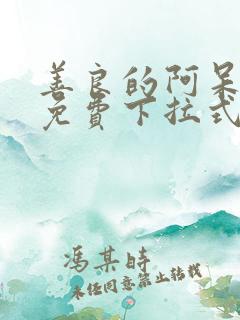 善良的阿呆
免费下拉式
冯某时
未经同意禁止转载